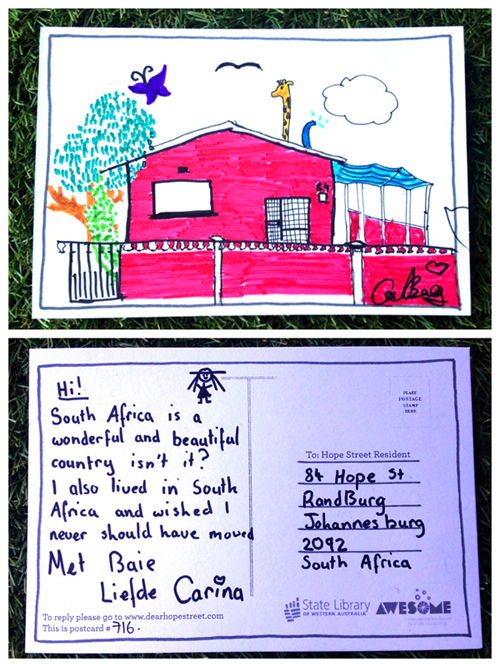 84
Hi!
South Africa is a
wonderful and beautiful
country isn't it?
I also lived in South
Africa and wished I
never should have moved
Met Baie
Liefde Carina
To reply please go to www.dearhopestreet.com
This is postcard # 716.
PLACE
POSTAGE
STAMP
HERE
To: Hope Street Resident
84 Hope St
RandBurg
Johannesburg
2092
South Africa
State Library
OF WESTERN AUSTRALIA
AWESOME